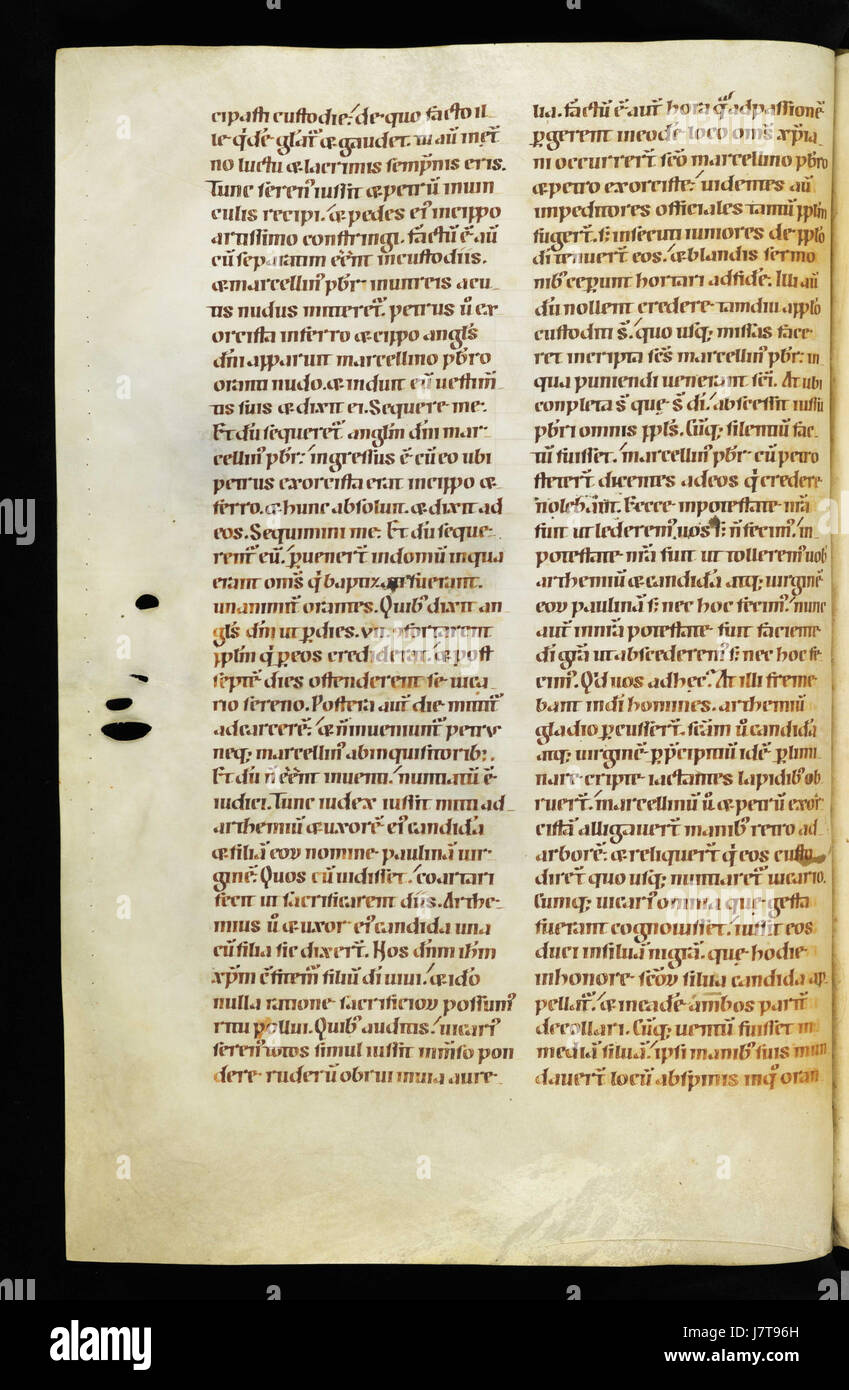 cipasti custodie. de quo facto il
le q'dē glat̄ & gaudet. tu aū inet̄
no luctu & lacrimis semp̄nis eris.
Tunc seren' iussit & petrū mun
culis recipi. & pedes ei' in cippo
artissimo constringi. factū ē aū
cū separatim eēnt in custodiis.
& marcellin' pbr̄ in uitreis acu
tis nudus mitteret̄. petrus ū ex
orcista in ferro & cippo angl's
dn̄i apparuit marcellino pbr̄o
oranti nudo. & induit eū uestim̄
tis suis & dixit ei. Sequere me.
Et dū sequeret̄ anglm̄ dn̄i mar
cellin' pbr̄. ingressus ē cū eo ubi
petrus exorcista erat in cippo &
ferro. & hunc absoluit. & dixit ad
eos. Sequimini me. Et dū seque
rent̄ eū. puenert̄ in domū in qua
erant om̄s q' baptizati fuerant.
unanimit̄ orantes. Quib' dixit an
gl's dn̄i ut p dies. vii. 9fortarent
pplm̄ q' p eos crediderat. & post
septē dies ostenderent se uica
rio sereno. Postera aut̄ die mittit̄
ad carcerē. & n̄ inueniunt̄ petrus
neq; marcellin' ab inquisitorib;.
Et dū n̄ eēnt inuenti. nuntiatū ē
iudici. Tunc iudex iussit mitti ad
arthemiū & uxorē ei' candidā
& filiā eoꝝ nomine paulinā uir
ginē. Quos cū uidisset. coartari
fecit ut sacrificarent diis. Arthe
mius ū & uxor ei' candida una
cū filia sic dixert̄. Nos dn̄m ihm̄
xp̄m 9fitem̄ filiū di uiui. & idō
nulla ratione sacrificioꝝ possum'
ritu pollui. Quib' auditis. uicari'
seren' totos simul iussit im̄enso pon
dere ruderū obrui in uia aure
lia. factū ē aut̄ hora q̄ ad passionē
pgerent in eodē loco om̄s xp̄ia
ni occurrert̄ sc̄o marcellino pbr̄o
& petro exorciste. uidentes aū
impeditores officiales tantū pplm̄
fugert̄. s; insecuti iuniores de pplo
di tenuert̄ eos. & blandis sermo
nib' ceperunt hortari ad fidē. Illi aū
dū nollent credere tamdiu a pplo
custoditi s̄. quo usq; missas face
ret in cripta sc̄s marcellin' pbr̄. in
qua puniendi uenerant sc̄i. At ubi
conpleta s̄ que s̄ di. abscessit iussu
pbr̄i omnis ppls̄. Cūq; silentiū fac
tū fuisset. marcellin' pbr̄ cū petro
stetert̄ dicentes ad eos q' credere
nolebant. Ecce in potestate nr̄a
fuit ut lederem' uos. s; n̄ fecim'. in
potestate nr̄a fuit ut tollerem' uob
arthemiū & candidā atq; uirginē
eoꝝ paulinā. s; nec hoc fecim'. nunc
aut̄ in nr̄a potestate fuit faciente
di gr̄a ut abscederem'. s; nec hoc fe
cim'. Q'd uos ad hec. At illi freme
bant indi homines. arthemiū
gladio pcussert̄. sc̄am ū candidā
atq; uirginē p pcipitiū idē p limi
nare cripte iactantes lapidib' ob
ruert̄. marcellinū ū & petrū exor
cistā alligauert̄ manib' retro ad
arborē. & reliquert̄ q' eos custo
diret quo usq; nuntiaret̄ uicario.
Cumq; uicari' omnia que gesta
fuerant cognouisset. iussit eos
duci in siluā nigrā. que hodie
in honore sc̄oꝝ silua candida ap
pellat̄. & in eadē ambos parit̄
decollari. Cūq; uentū fuisset in
mediā siluā. ipsi manib' suis mun
dauert̄ locū ab spinis in q' oran
alamy
J7T96H
www.alamy.com